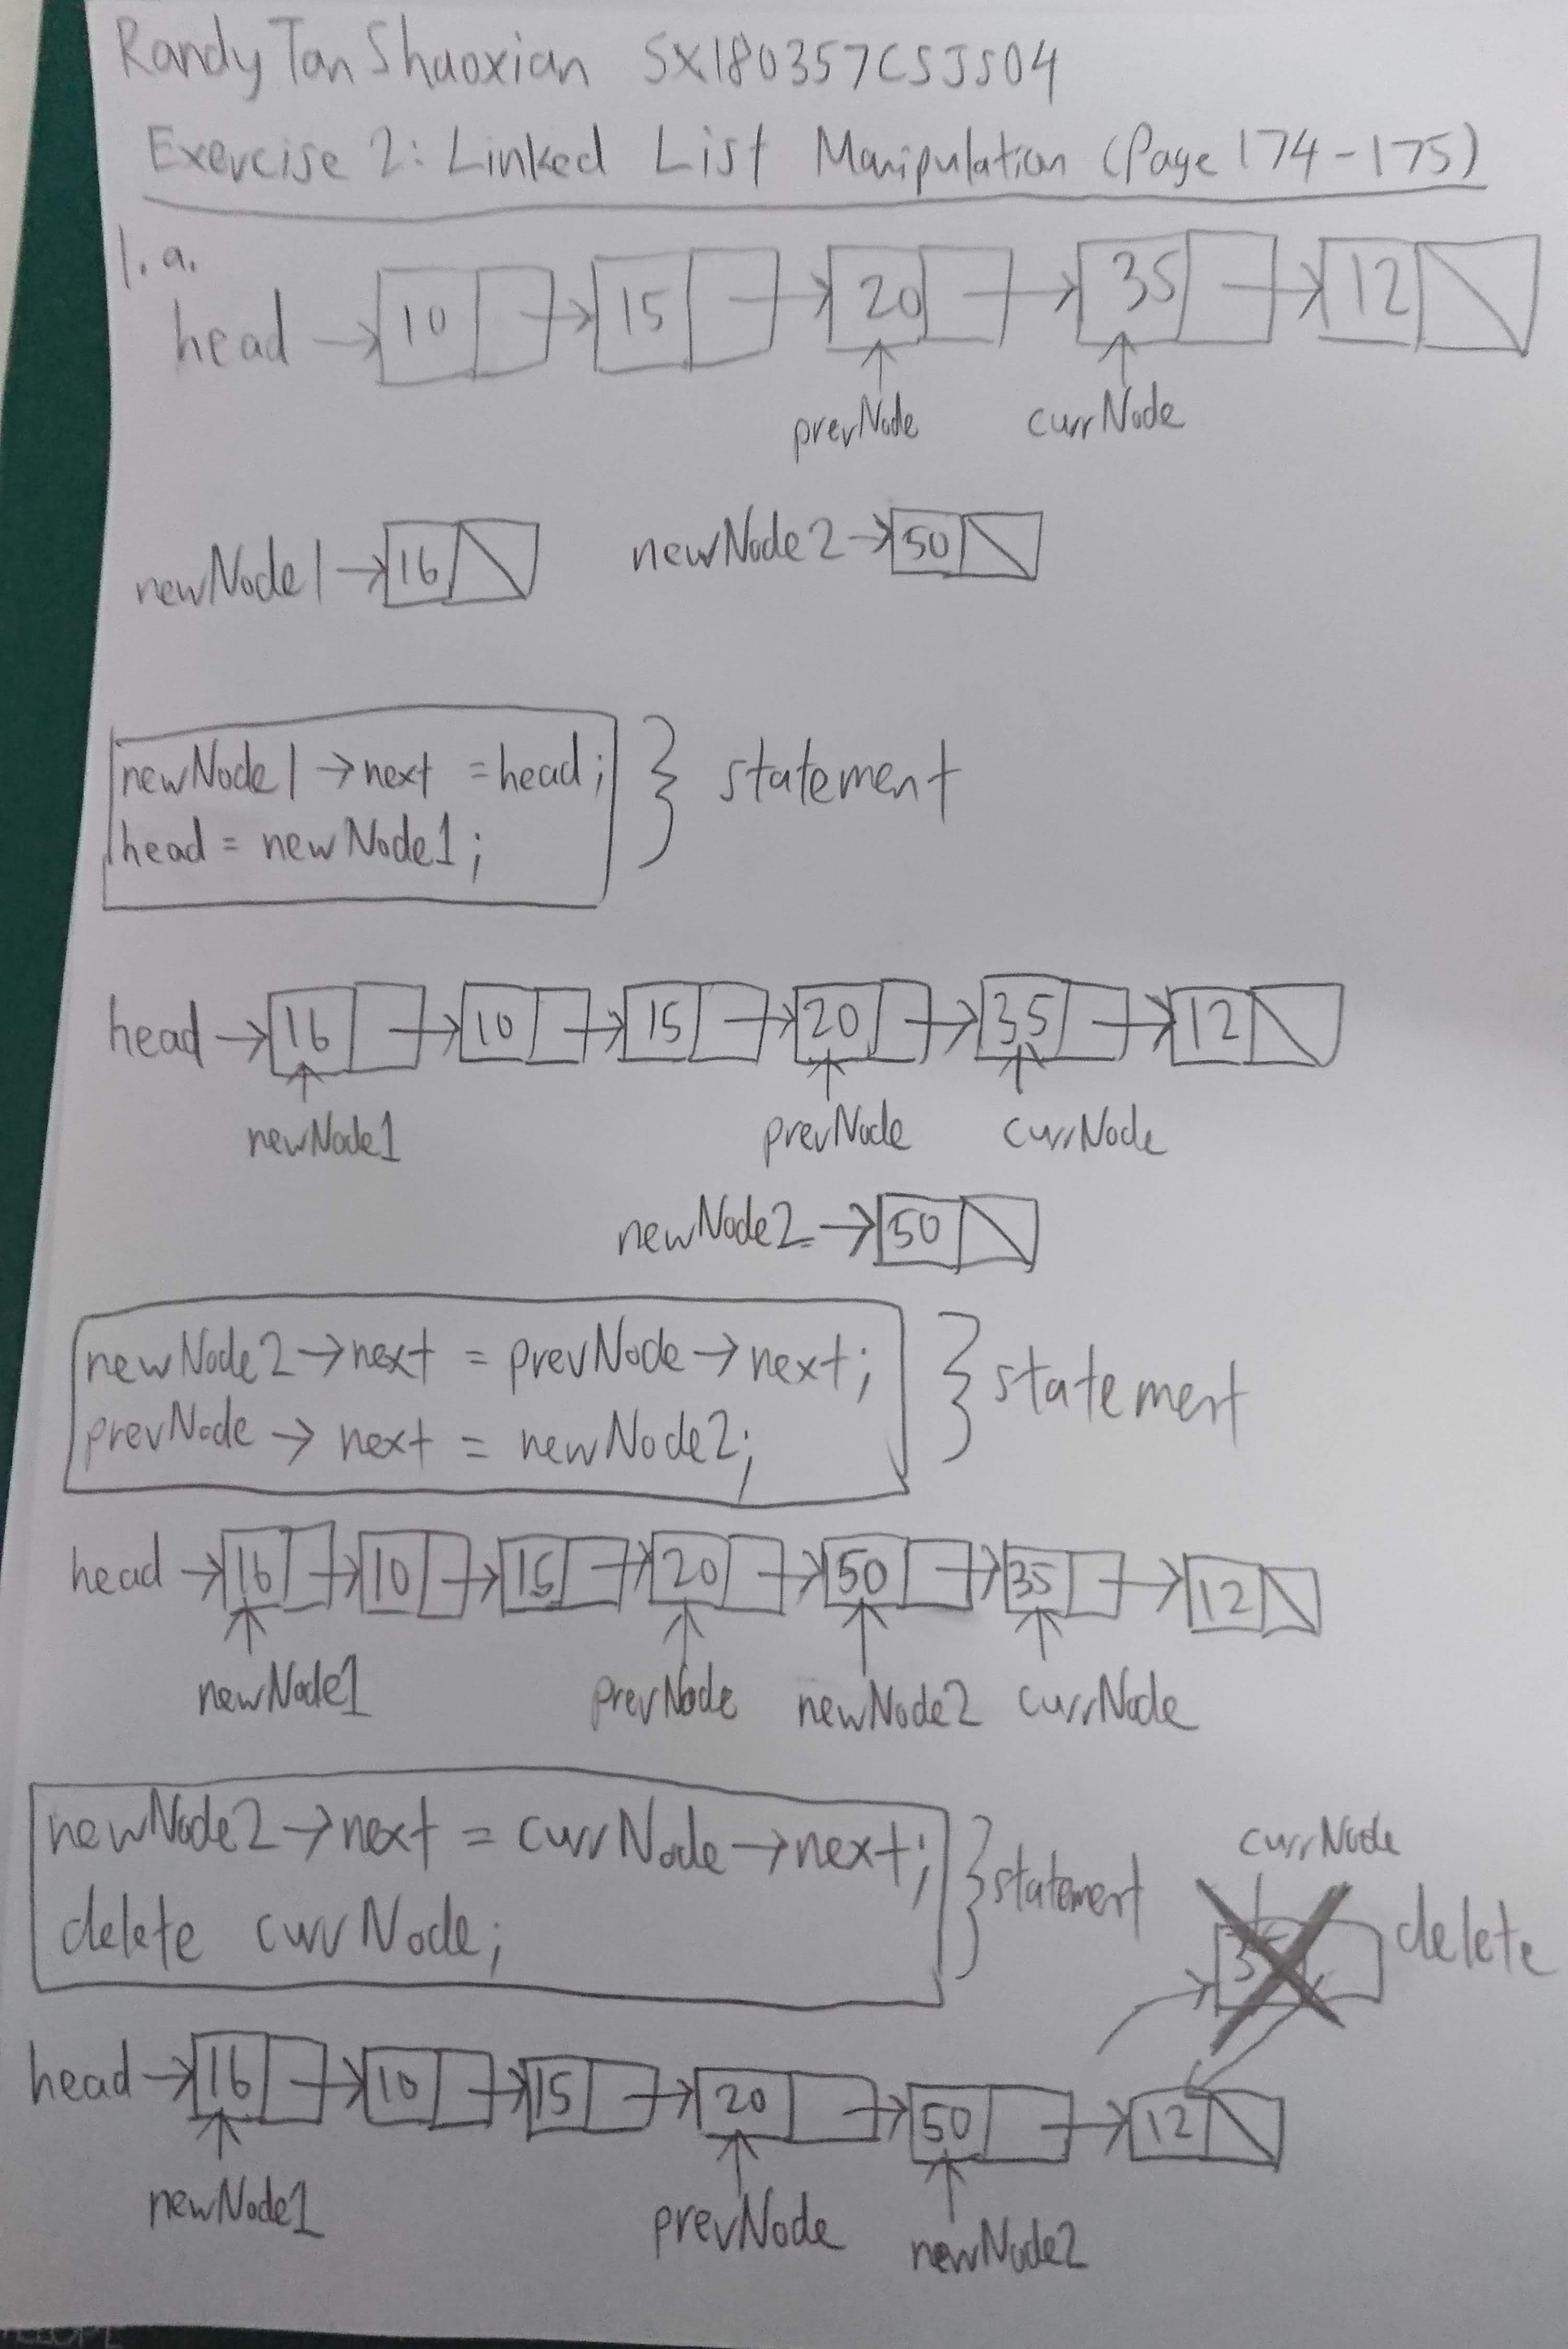 Randy Tan Shaoxian SX180357CSJS04
Exercise 2: Linked List Manipulation (Page 174-175)
1. a.
head → 10 → 15 → 20 → 35 → 12
prevNode currNode
newNode1 → 16 newNode2 → 50
newNode1 → next = head; } statement
head = newNode1;
head → 16 → 10 → 15 → 20 → 35 → 12
newNode1 prevNode currNode
newNode2 → 50
newNode2 → next = prevNode → next; } statement
prevNode → next = newNode2;
head → 16 → 10 → 15 → 20 → 50 → 35 → 12
newNode1 prevNode newNode2 currNode
newNode2 → next = currNode → next; } statement
delete currNode;
currNode
delete
head → 16 → 10 → 15 → 20 → 50 → 12
newNode1 prevNode newNode2